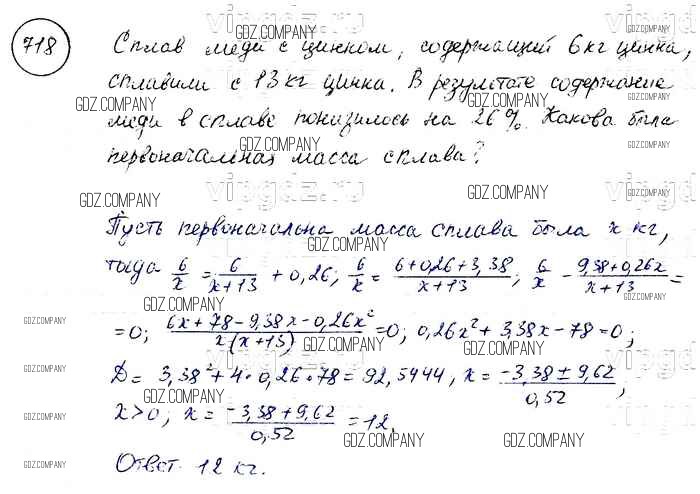 718
Сплав меди с цинком, содержащий 6 кг цинка,
сплавили с 13 кг цинка. В результате содержание
меди в сплаве понизилось на 26%. Какова была
первоначальная масса сплава?
Пусть первоначальна масса сплава была x кг,
тогда 6/x = 6/(x+13) + 0,26; 6/x = (6+0,26+3,38)/(x+13); 6/x - (9,38+0,26x)/(x+13) =
= 0; (6x+78-9,38x-0,26x²)/(x(x+13)) = 0; 0,26x²+3,38x-78=0;
D = 3,38²+4·0,26·78 = 92,5444, x = (-3,38±9,62)/0,52,
x>0; x = (-3,38+9,62)/0,52 = 12.
Ответ. 12 кг.
GDZ.COMPANY
vipgdz.ru